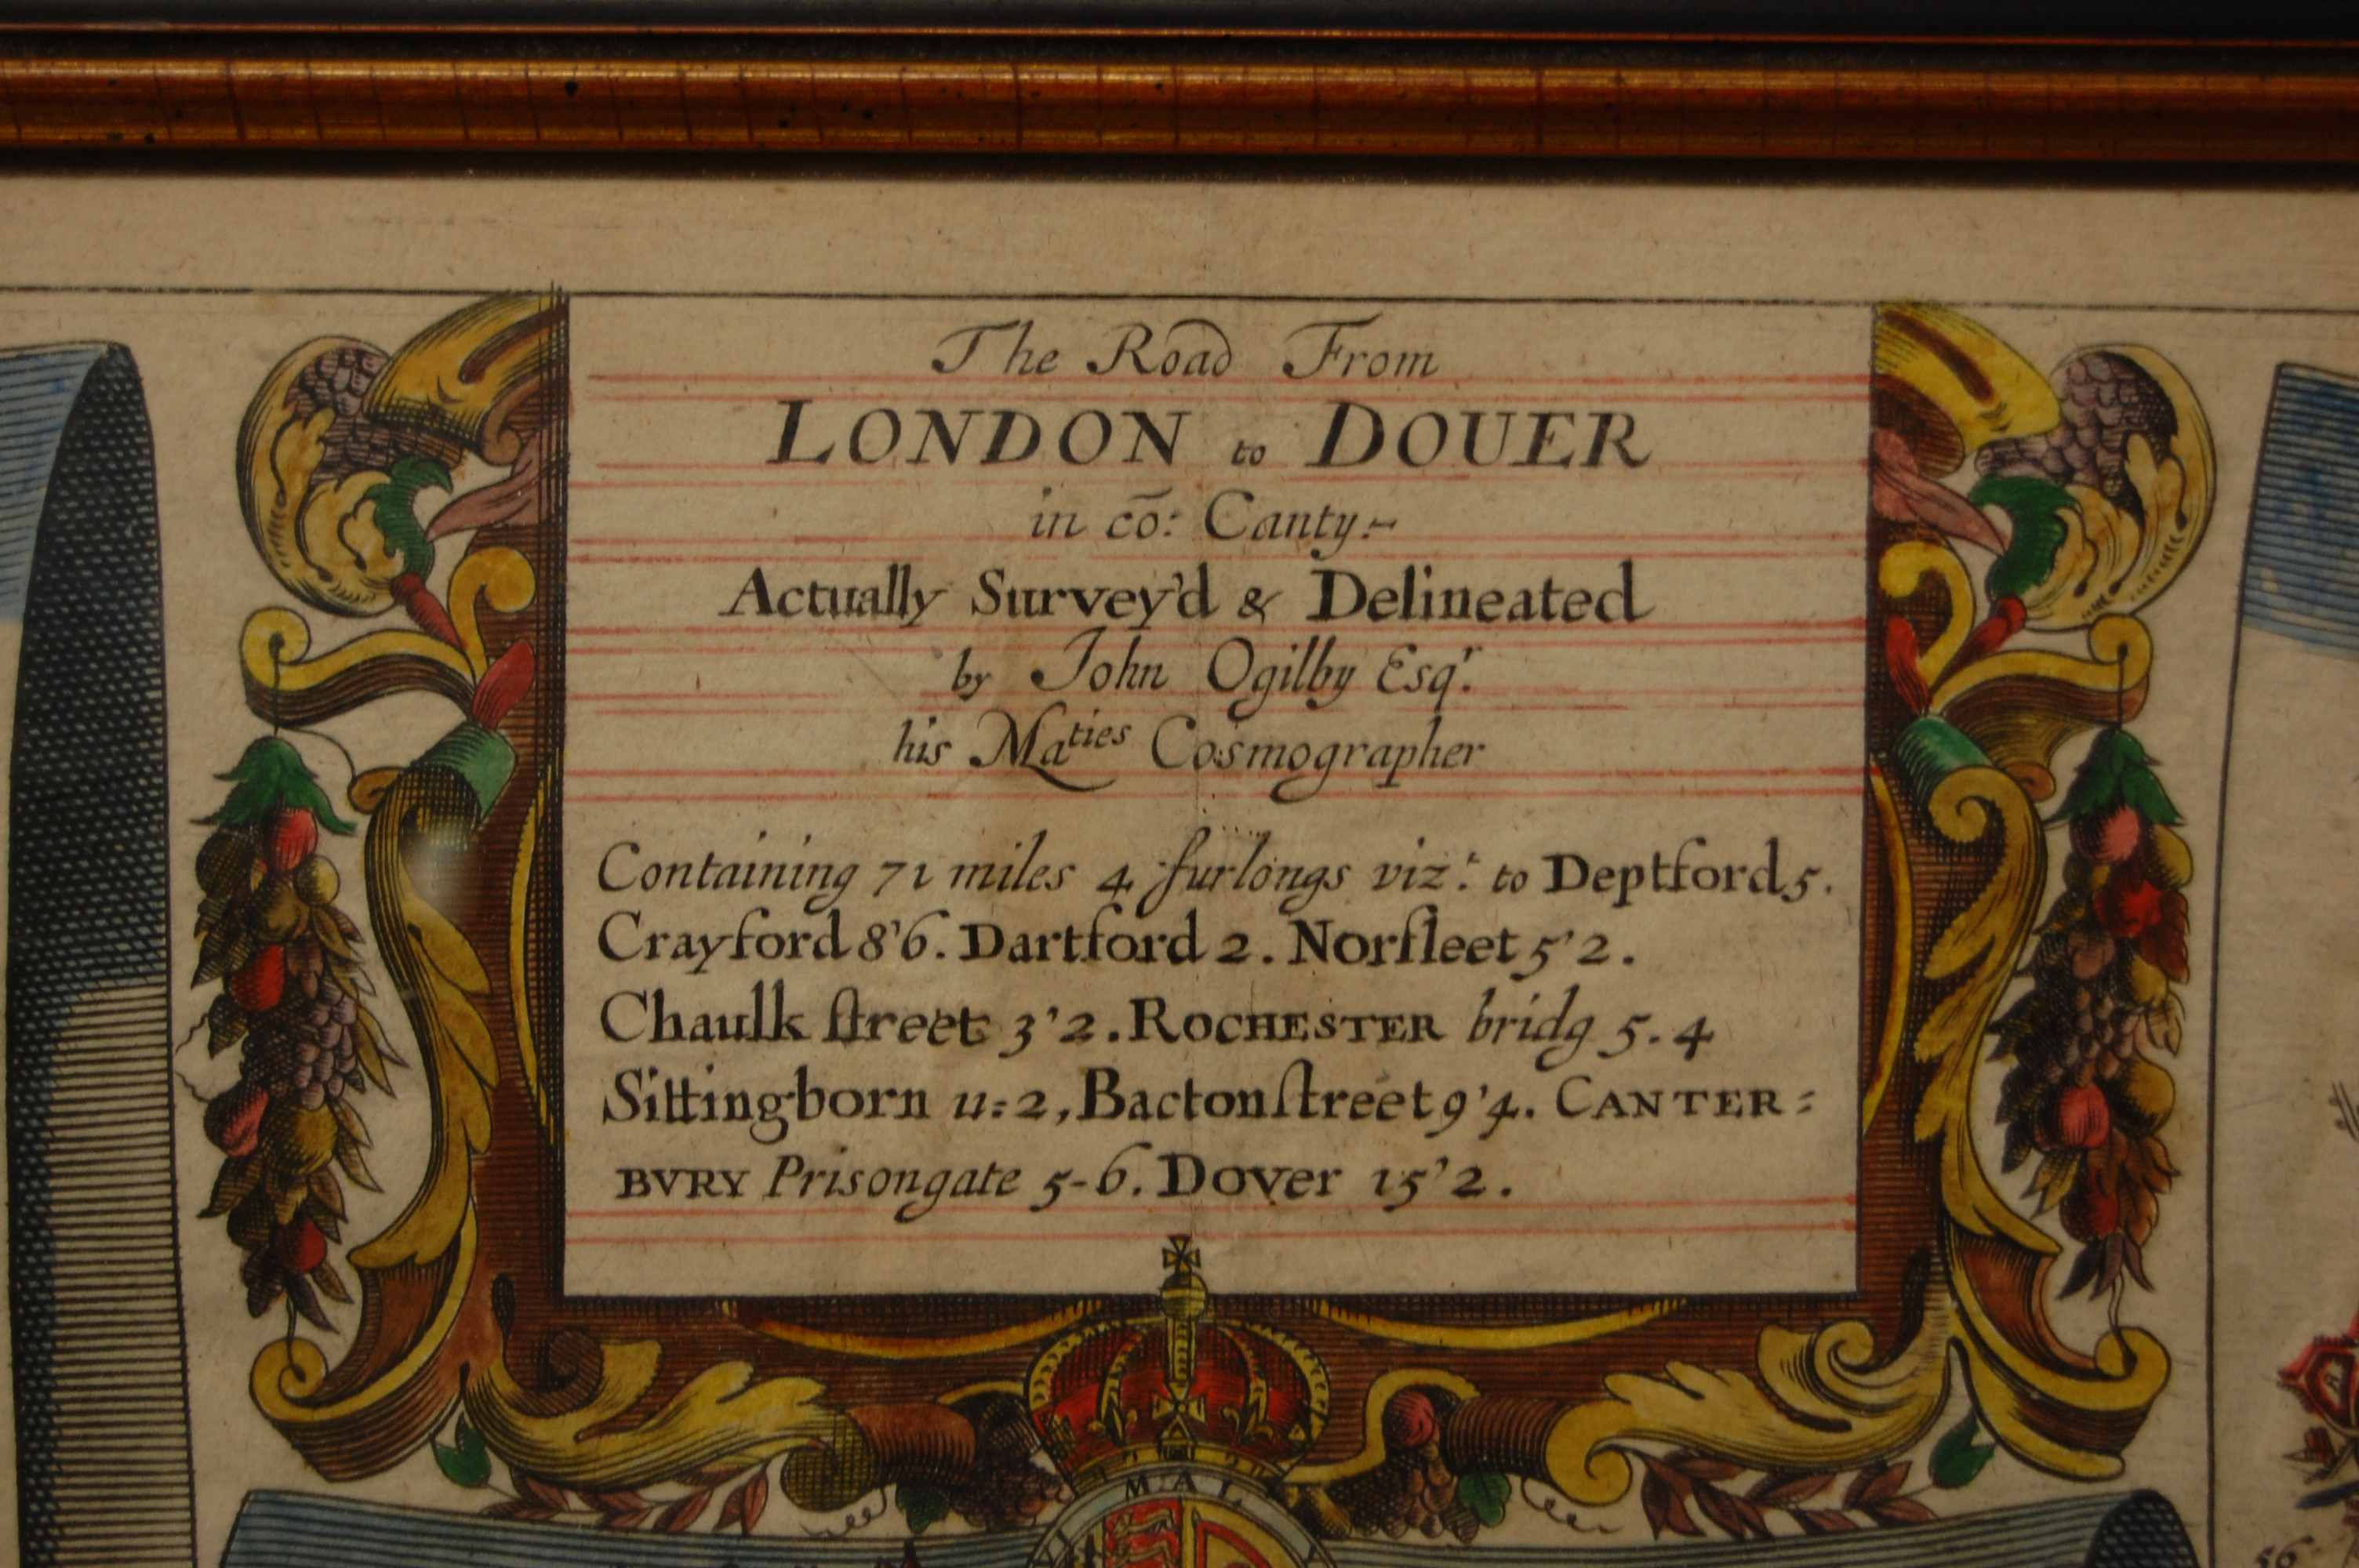 The Road From
LONDON to DOUER
in cō: Canty:-
Actually Survey'd & Delineated
by John Ogilby Esqr.
his Maties Cosmographer
Containing 71 miles 4 furlongs vizt. to Deptford 5.
Crayford 8'6. Dartford 2. Norfleet 5'2.
Chaulk ſtreet 3'2. ROCHESTER bridg 5.4
Sittingborn 11=2, Bactonſtreet 9'4. CANTER=
BVRY Prisongate 5-6. Dover 15'2.